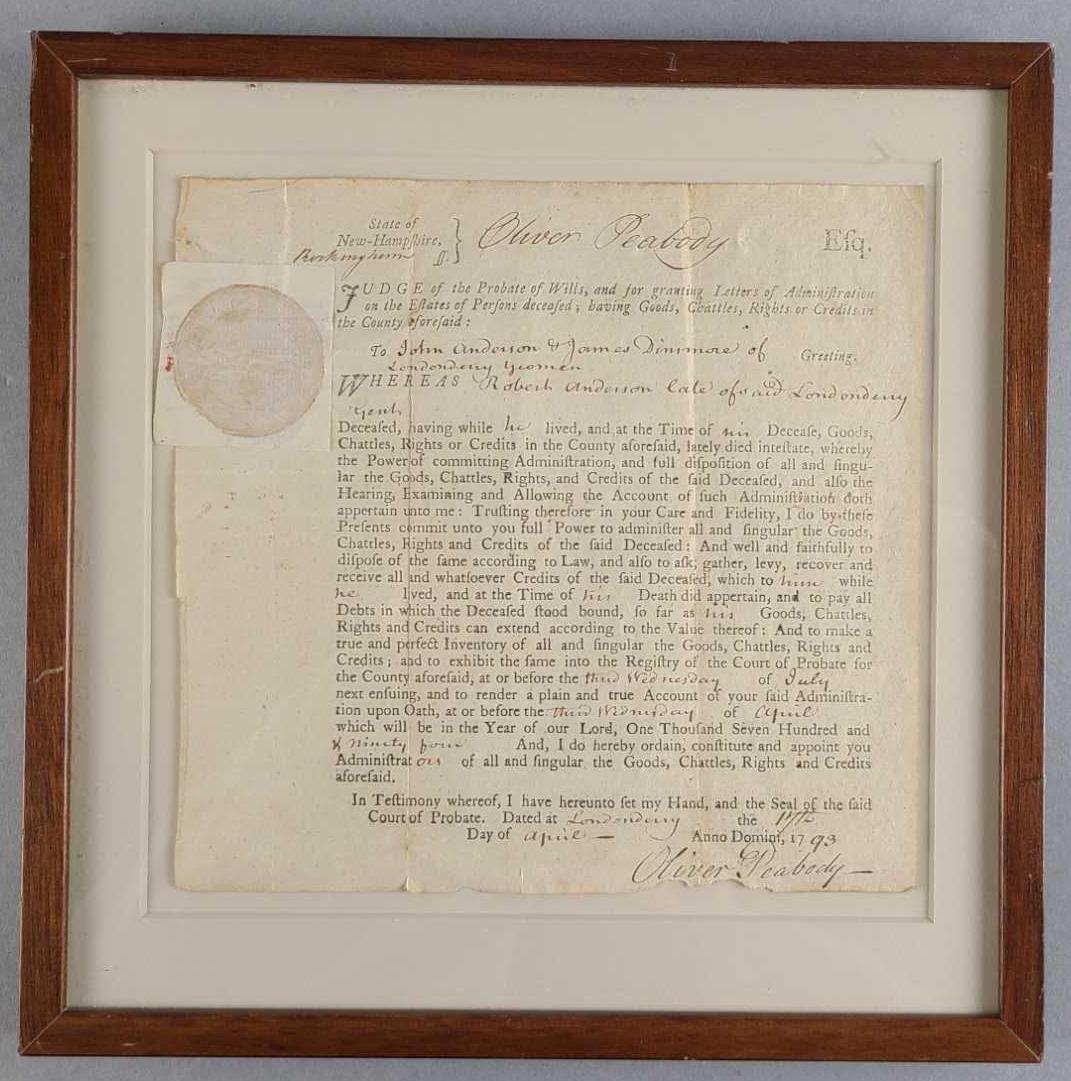 State of
New-Hampſhire, } Oliver Peabody Eſq.
Rockingham ſſ.
JUDGE of the Probate of Wills, and for granting Letters of Adminiſtration
on the Eſtates of Perſons deceaſed; having Goods, Chattles, Rights or Credits in
the County aforeſaid:
To John Anderson & James Dinsmore of Greeting.
Londonderry Yeomen
WHEREAS Robert Anderson late of said Londonderry
Gent
Deceaſed, having while he lived, and at the Time of his Deceaſe, Goods,
Chattles, Rights or Credits in the County aforeſaid, lately died inteſtate, whereby
the Power of committing Adminiſtration, and full diſpoſition of all and ſingu-
lar the Goods, Chattles, Rights, and Credits of the ſaid Deceaſed, and alſo the
Hearing, Examining and Allowing the Account of ſuch Adminiſtration doth
appertain unto me: Truſting therefore in your Care and Fidelity, I do by theſe
Preſents commit unto you full Power to adminiſter all and ſingular the Goods,
Chattles, Rights and Credits of the ſaid Deceaſed: And well and faithfully to
diſpoſe of the ſame according to Law, and alſo to aſk, gather, levy, recover and
receive all and whatſoever Credits of the ſaid Deceaſed, which to him while
he lived, and at the Time of his Death did appertain, and to pay all
Debts in which the Deceaſed ſtood bound, ſo far as his Goods, Chattles,
Rights and Credits can extend according to the Value thereof: And to make a
true and perfect Inventory of all and ſingular the Goods, Chattles, Rights and
Credits; and to exhibit the ſame into the Regiſtry of the Court of Probate for
the County aforeſaid, at or before the third Wednesday of July
next enſuing, and to render a plain and true Account of your ſaid Adminiſtra-
tion upon Oath, at or before the third Wednesday of April
which will be in the Year of our Lord, One Thouſand Seven Hundred and
& ninety four And, I do hereby ordain, conſtitute and appoint you
Adminiſtrators of all and ſingular the Goods, Chattles, Rights and Credits
aforeſaid.
In Teſtimony whereof, I have hereunto ſet my Hand, and the Seal of the ſaid
Court of Probate. Dated at Londonderry the 17th
Day of April — Anno Domini, 1793
Oliver Peabody —